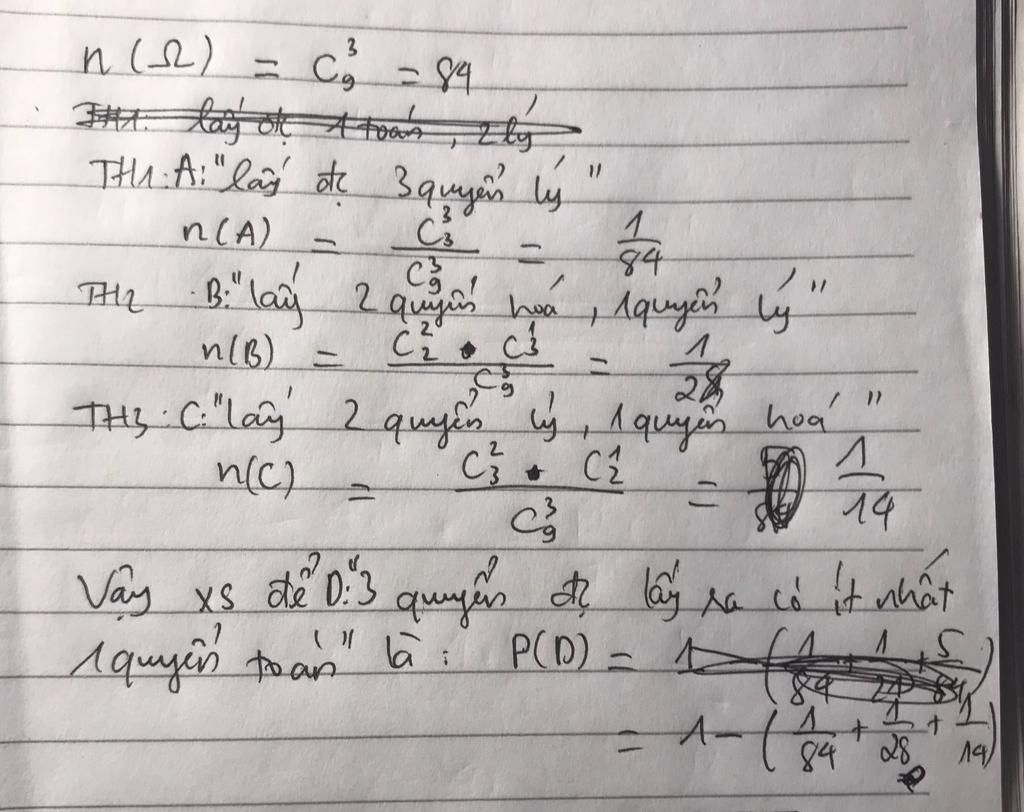 n(Ω) = C₉³ = 84
TH1: lấy đc 1 toán, 2 lý
TH1: A: "lấy đc 3 quyển lý"
n(A) = C₃³ / C₉³ = 1/84
TH2 B: "lấy 2 quyển hoá, 1 quyển lý"
n(B) = C₂² • C₃¹ / C₉³ = 1/28
TH3: C: "lấy 2 quyển lý, 1 quyển hoá"
n(C) = C₃² • C₂¹ / C₉³ = 1/14
Vậy xs để D: "3 quyển đc lấy ra có ít nhất
1 quyển toán" là: P(D) = 1 - (1/84 + 1/28 + 5/84)
= 1 - (1/84 + 1/28 + 1/14)